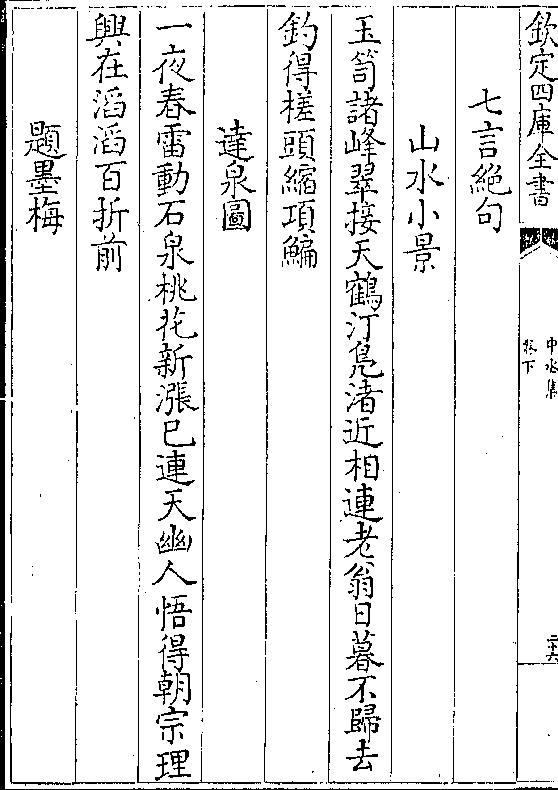 欽定四庫全書
中丞集
卷下
二十六
七言絶句
山水小景
玉笥諸峰翠接天鶴汀鳧渚近相連老翁日暮不歸去
釣得槎頭縮項鯿
達泉圖
一夜春雷動石泉桃花新漲已連天幽人悟得朝宗理
興在滔滔百折前
題墨梅